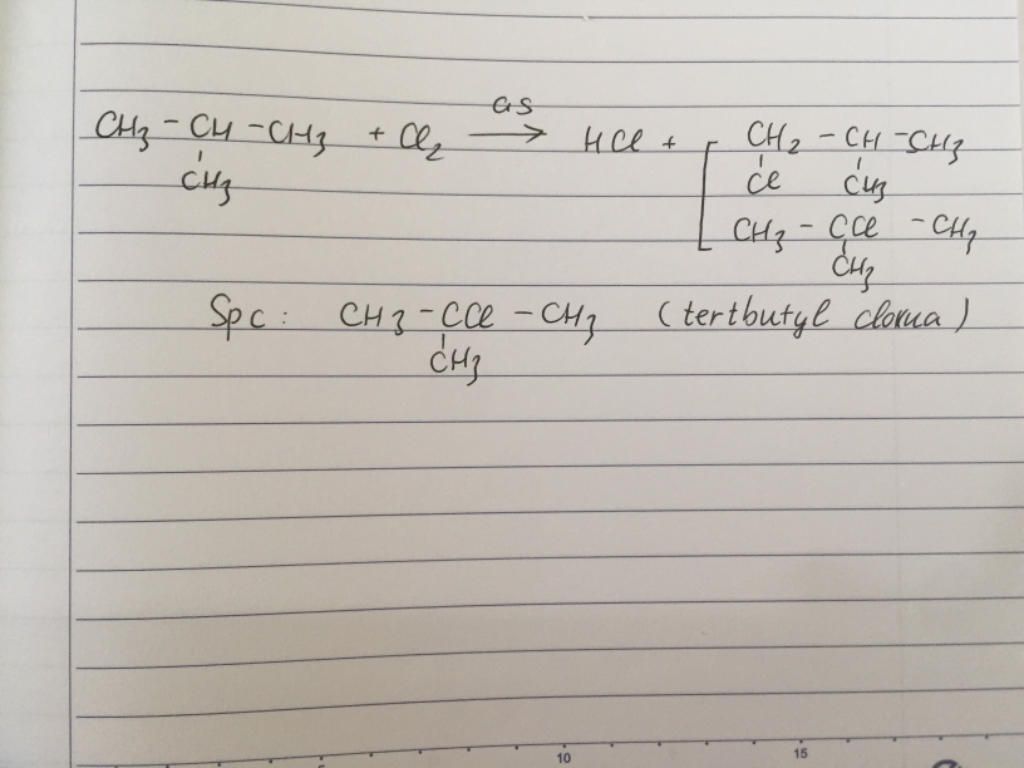 as
CH3 - CH - CH3 + Cl2 → HCl + [ CH2 - CH - CH3
CH3 Cl CH3
CH3 - CCl - CH3
CH3
Spc: CH3 - CCl - CH3 (tertbutyl clorua)
CH3
10 15